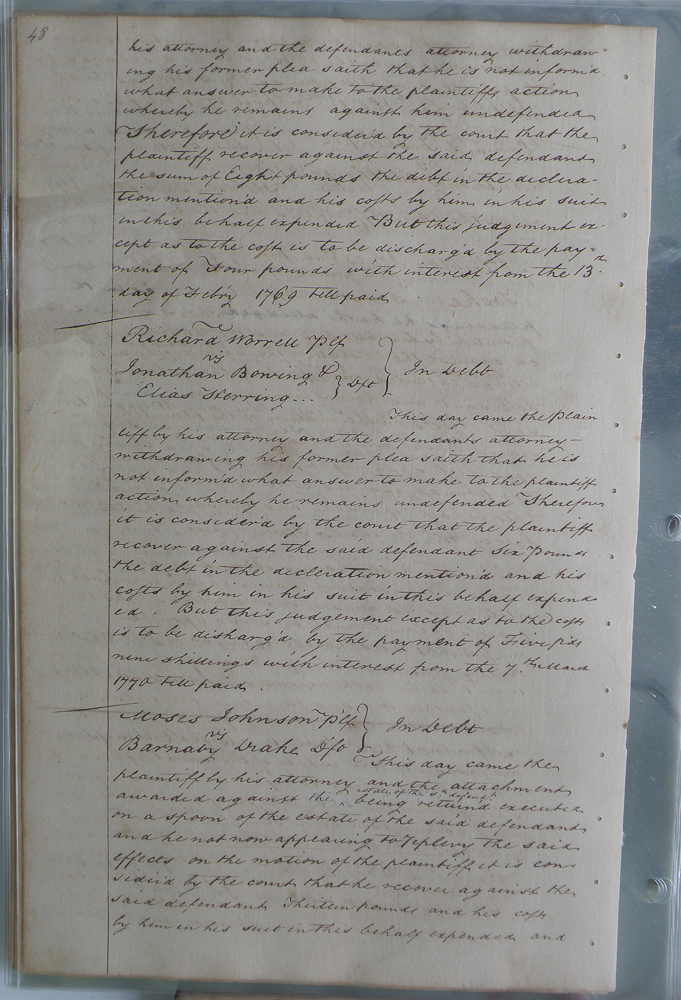 48
his attorney and the defendants attorney withdraw=
ing his former plea saith that he is not inform'd
what answer to make to the plaintiffs action
whereby he remains against him undefended
Therefore it is consider'd by the court that the
plaintiff recover against the said defendant
the sum of Eight pounds the debt in the declera-
tion mention'd and his costs by him in his suit
in this behalf expended But this judgement ex-
cept as to the cost is to be discharg'd by the pay=
ment of Four pounds with interest from the 13th
day of Febry 1769 till paid
Richard Worrell Plf
vs
Jonathan Bowing &
Elias Herring... } Dft } In Debt
This day came the Plain
tiff by his attorney and the defendants attorney-
withdrawing his former plea saith that he is
not inform'd what answer to make to the plaintiff
action whereby he remains undefended Therefore
it is consider'd by the court that the plaintiff
recover against the said defendant Six Pounds
the debt in the decleration mention'd and his
costs by him in his suit in this behalf expend
ed. But this judgement except as to the costs
is to be disharg'd by the payment of Five pds
nine shillings with interest from the 7th March
1770 till paid.
Moses Johnson Plf
vs } In Debt
Barnaby Drake Dft
This day came the
plaintiff by his attorney and the attachment
awarded against the estate of the sd. defendt being return'd executed
on a spoon of the estate of the said defendant
and he not now appearing to replevy the said
effects on the motion of the plaintiff it is con=
sider'd by the court that he recover against the
said defendant Thirteen pounds and his costs
by him in his suit in this behalf expended and